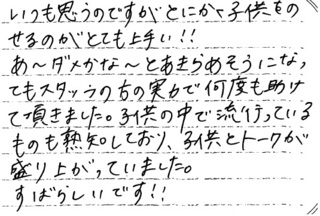 いつも思うのですがとにかく子供をの
せるのがとても上手い!!
あ～ダメかな～とあきらめそうになっ
てもスタッフの方の実力で何度も助け
て頂きました。子供の中で流行っている
ものも熟知しており、子供とトークが
盛り上がっていました。
すばらしいです!!